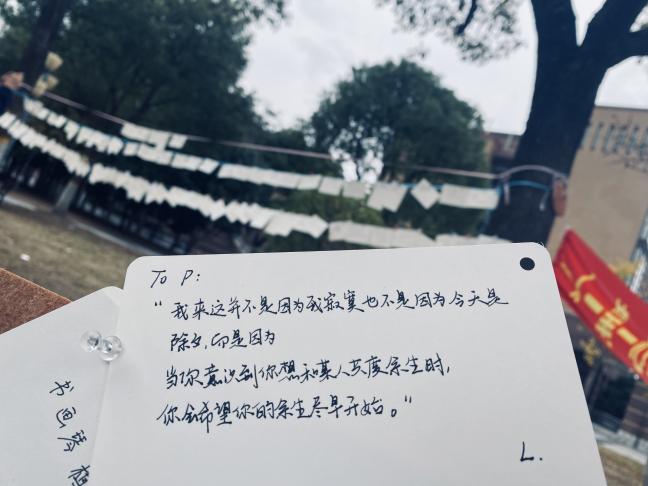 To P:
“我来这并不是因为我寂寞也不是因为今天是
除夕,而是因为
当你意识到你想和某人共度余生时,
你会希望你的余生尽早开始。”
L.
书画琴